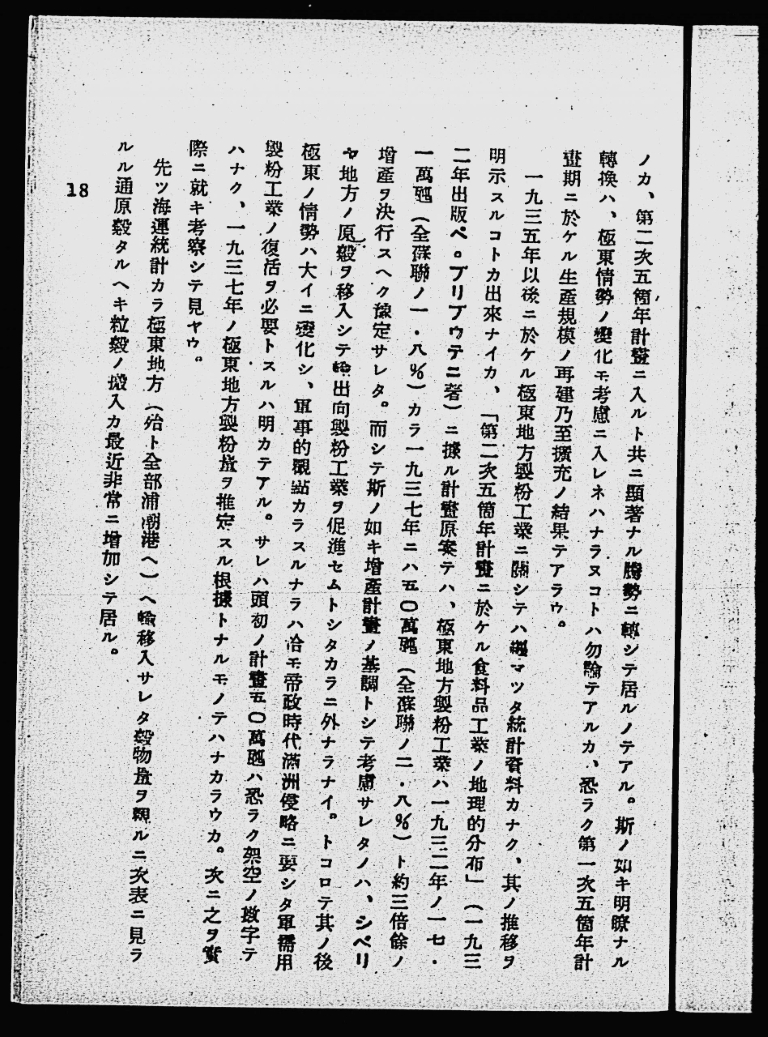 ノカ、第二次五箇年計畫ニ入ルト共ニ顯著ナル騰勢ニ轉シテ居ルノテアル。斯ノ如キ明瞭ナル
轉換ハ、極東情勢ノ變化モ考慮ニ入レネハナラヌコトハ勿論テアルカ、恐ラク第一次五箇年計
畫期ニ於ケル生產規模ノ再建乃至擴充ノ結果テアラウ。
一九三五年以後ニ於ケル極東地方製粉工業ニ關シテハ纏マツタ統計資料カナク、其ノ推移ヲ
明示スルコトカ出來ナイカ、「第二次五箇年計畫ニ於ケル食料品工業ノ地理的分布」（一九三
二年出版ペ。プリブウテニ著）ニ據ル計畫原案テハ、極東地方製粉工業ハ一九三二年ノ一七・
一萬瓲（全蘇聯ノ一・八％）カラ一九三七年ニハ五〇萬瓲（全蘇聯ノ二・八％）ト約三倍餘ノ
增產ヲ決行スヘク豫定サレタ。而シテ斯ノ如キ增產計畫ノ基調トシテ考慮サレタノハ、シベリ
ヤ地方ノ原穀ヲ移入シテ輸出向製粉工業ヲ促進セムトシタカラニ外ナラナイ。トコロテ其ノ後
極東ノ情勢ハ大イニ變化シ、軍事的觀點カラスルナラハ恰モ帝政時代滿洲侵略ニ要シタ軍需用
製粉工業ノ復活ヲ必要トスルハ明カテアル。サレハ頭初ノ計畫五〇萬瓲ハ恐ラク架空ノ數字テ
ハナク、一九三七年ノ極東地方製粉量ヲ推定スル根據トナルモノテハナカラウカ。次ニ之ヲ實
際ニ就キ考察シテ見ヤウ。
先ツ海運統計カラ極東地方（殆ト全部浦潮港ヘ）ヘ輸移入サレタ穀物量ヲ觀ルニ次表ニ見ラ
ルル通原穀タルヘキ粒穀ノ搬入カ最近非常ニ增加シテ居ル。
18